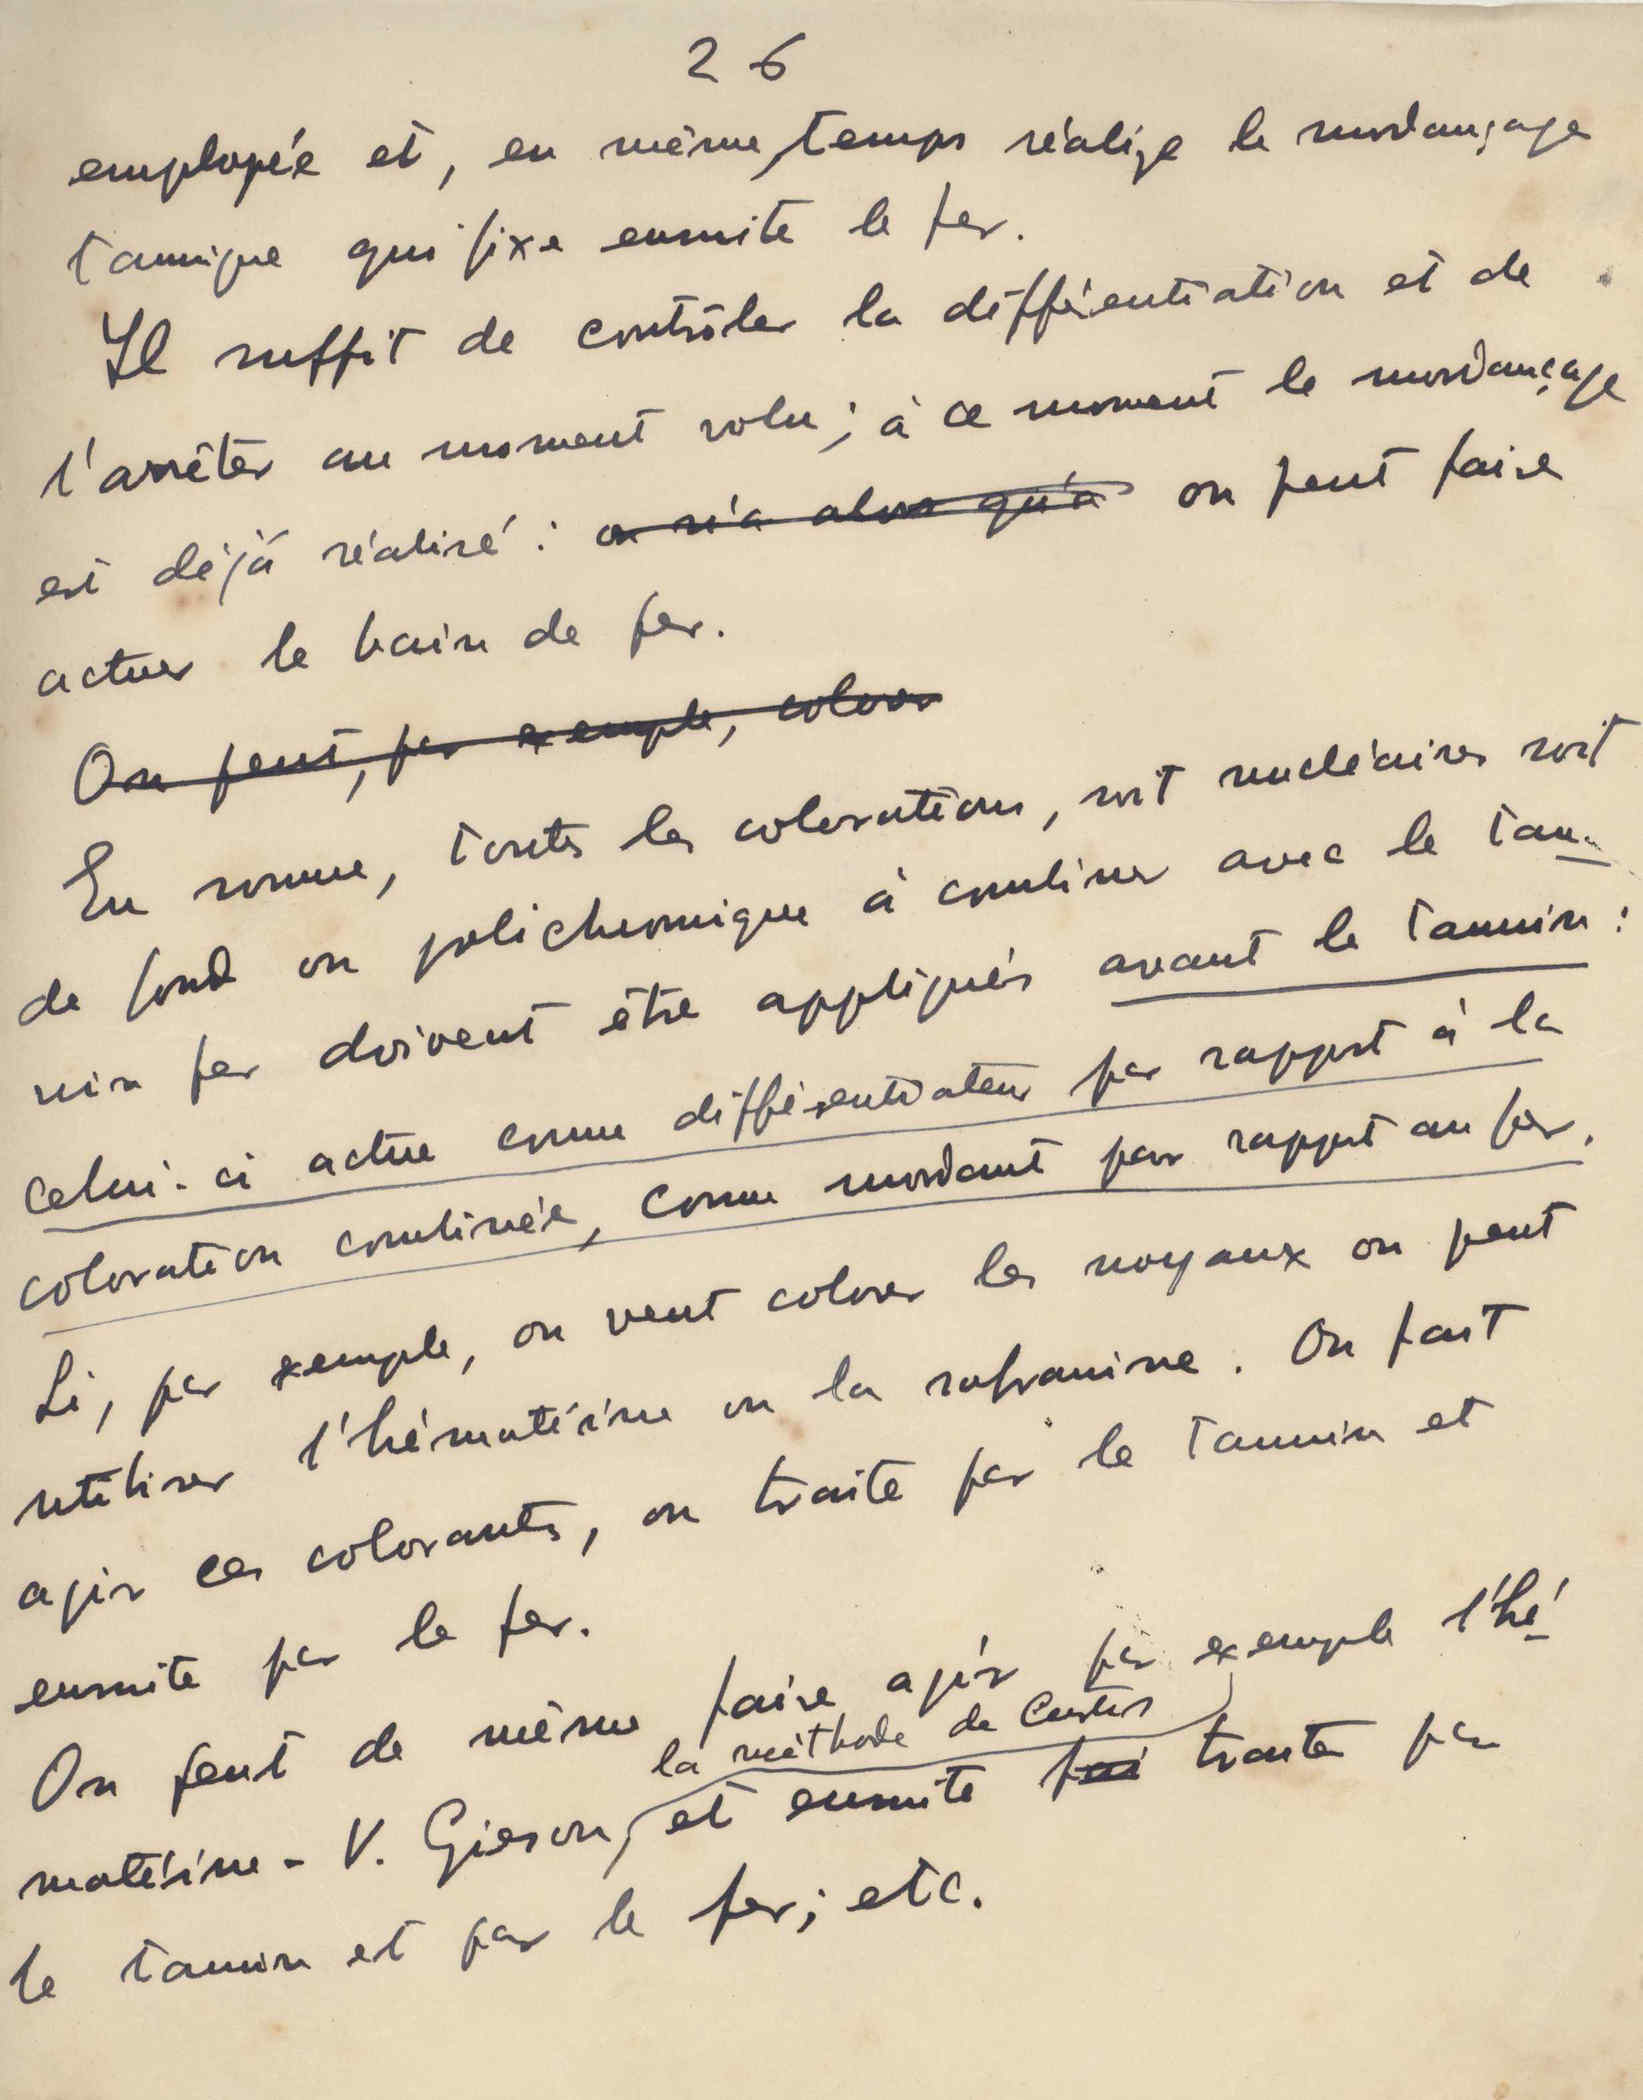 26
employée et, en même temps réalise le mordançage
tannique qui fixe ensuite le fer.
Il suffit de contrôler la différentiation et de
l'arrêter au moment volu; à ce moment le mordançage
est déjà réalisé: on n'a alors qu'à on peut faire
actuer le bain de fer.
On peut, par exemple, colorer
En somme, toutes les colorations, soit nucléaires soit
de fond ou polichromique à combiner avec le tan-
nin fer doivent être appliqués avant le tannin:
celui-ci actue comme différentiateur par rapport à la
coloration combinée, comme mordant par rapport au fer.
Si, par exemple, on veut colorer les noyaux on peut
utiliser l'hématéïne ou la safranine. On fait
agir ces colorants, on traite par le tannin et
ensuite par le fer.
On peut de même faire agir par exemple l'hé-
la méthode de Curtis
matéïne - V. Gieson, et ensuite traiter par
le tannin et par le fer; etc.